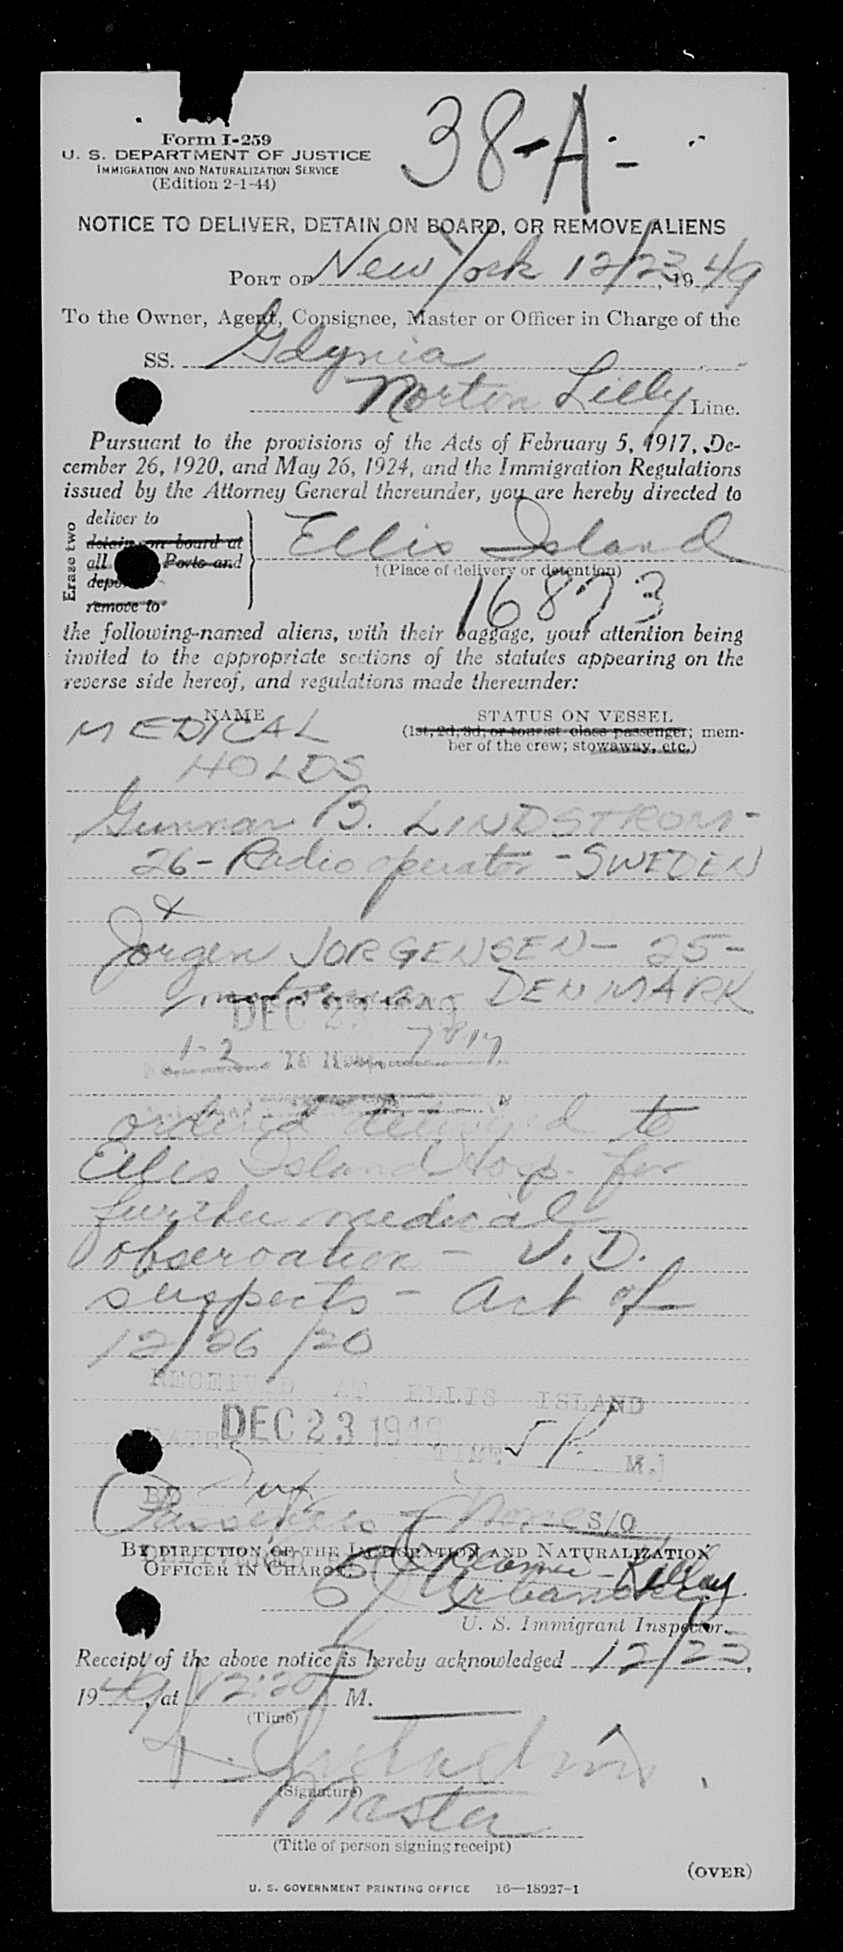 38-A-
Form I-259
U. S. DEPARTMENT OF JUSTICE
IMMIGRATION AND NATURALIZATION SERVICE
(Edition 2-1-44)
NOTICE TO DELIVER, DETAIN ON BOARD, OR REMOVE ALIENS
PORT OF New York 12/23, 1949
To the Owner, Agent, Consignee, Master or Officer in Charge of the
SS. Gdynia
Norton Lilly Line.
Pursuant to the provisions of the Acts of February 5, 1917, De-
cember 26, 1920, and May 26, 1924, and the Immigration Regulations
issued by the Attorney General thereunder, you are hereby directed to
Erase two
deliver to
detain on board at
all Ports and
remove to
Ellis Island
†(Place of delivery or detention)
16873
the following-named aliens, with their baggage, your attention being
invited to the appropriate sections of the statutes appearing on the
reverse side hereof, and regulations made thereunder:
NAME STATUS ON VESSEL
(1st, 2d, 3d, or tourist class passenger; mem-
ber of the crew; stowaway, etc.)
MEDICAL
HOLDS
Gunnar B. LINDSTROM-
26- Radio operator - SWEDEN
&
Jorgen JORGENSEN- 25-
motorman DENMARK
DEC 23
1-2 TO 7817
ordered delivered to
Ellis Island Hosp. for
further medical
observation - V.D.
suspects - Act of
12/26/20
RECEIVED AT ELLIS ISLAND
DATE DEC 23 1949 TIME 5 P. M.
BY
None S/O
BY DIRECTION OF THE IMMIGRATION AND NATURALIZATION
OFFICER IN CHARGE:
Kelley
Urbanski
U. S. Immigrant Inspector.
Receipt of the above notice is hereby acknowledged 12/23,
1949, at 12:20 P M.
(Time)
(Signature)
Master
(Title of person signing receipt)
(OVER)
U. S. GOVERNMENT PRINTING OFFICE 16—18927-1